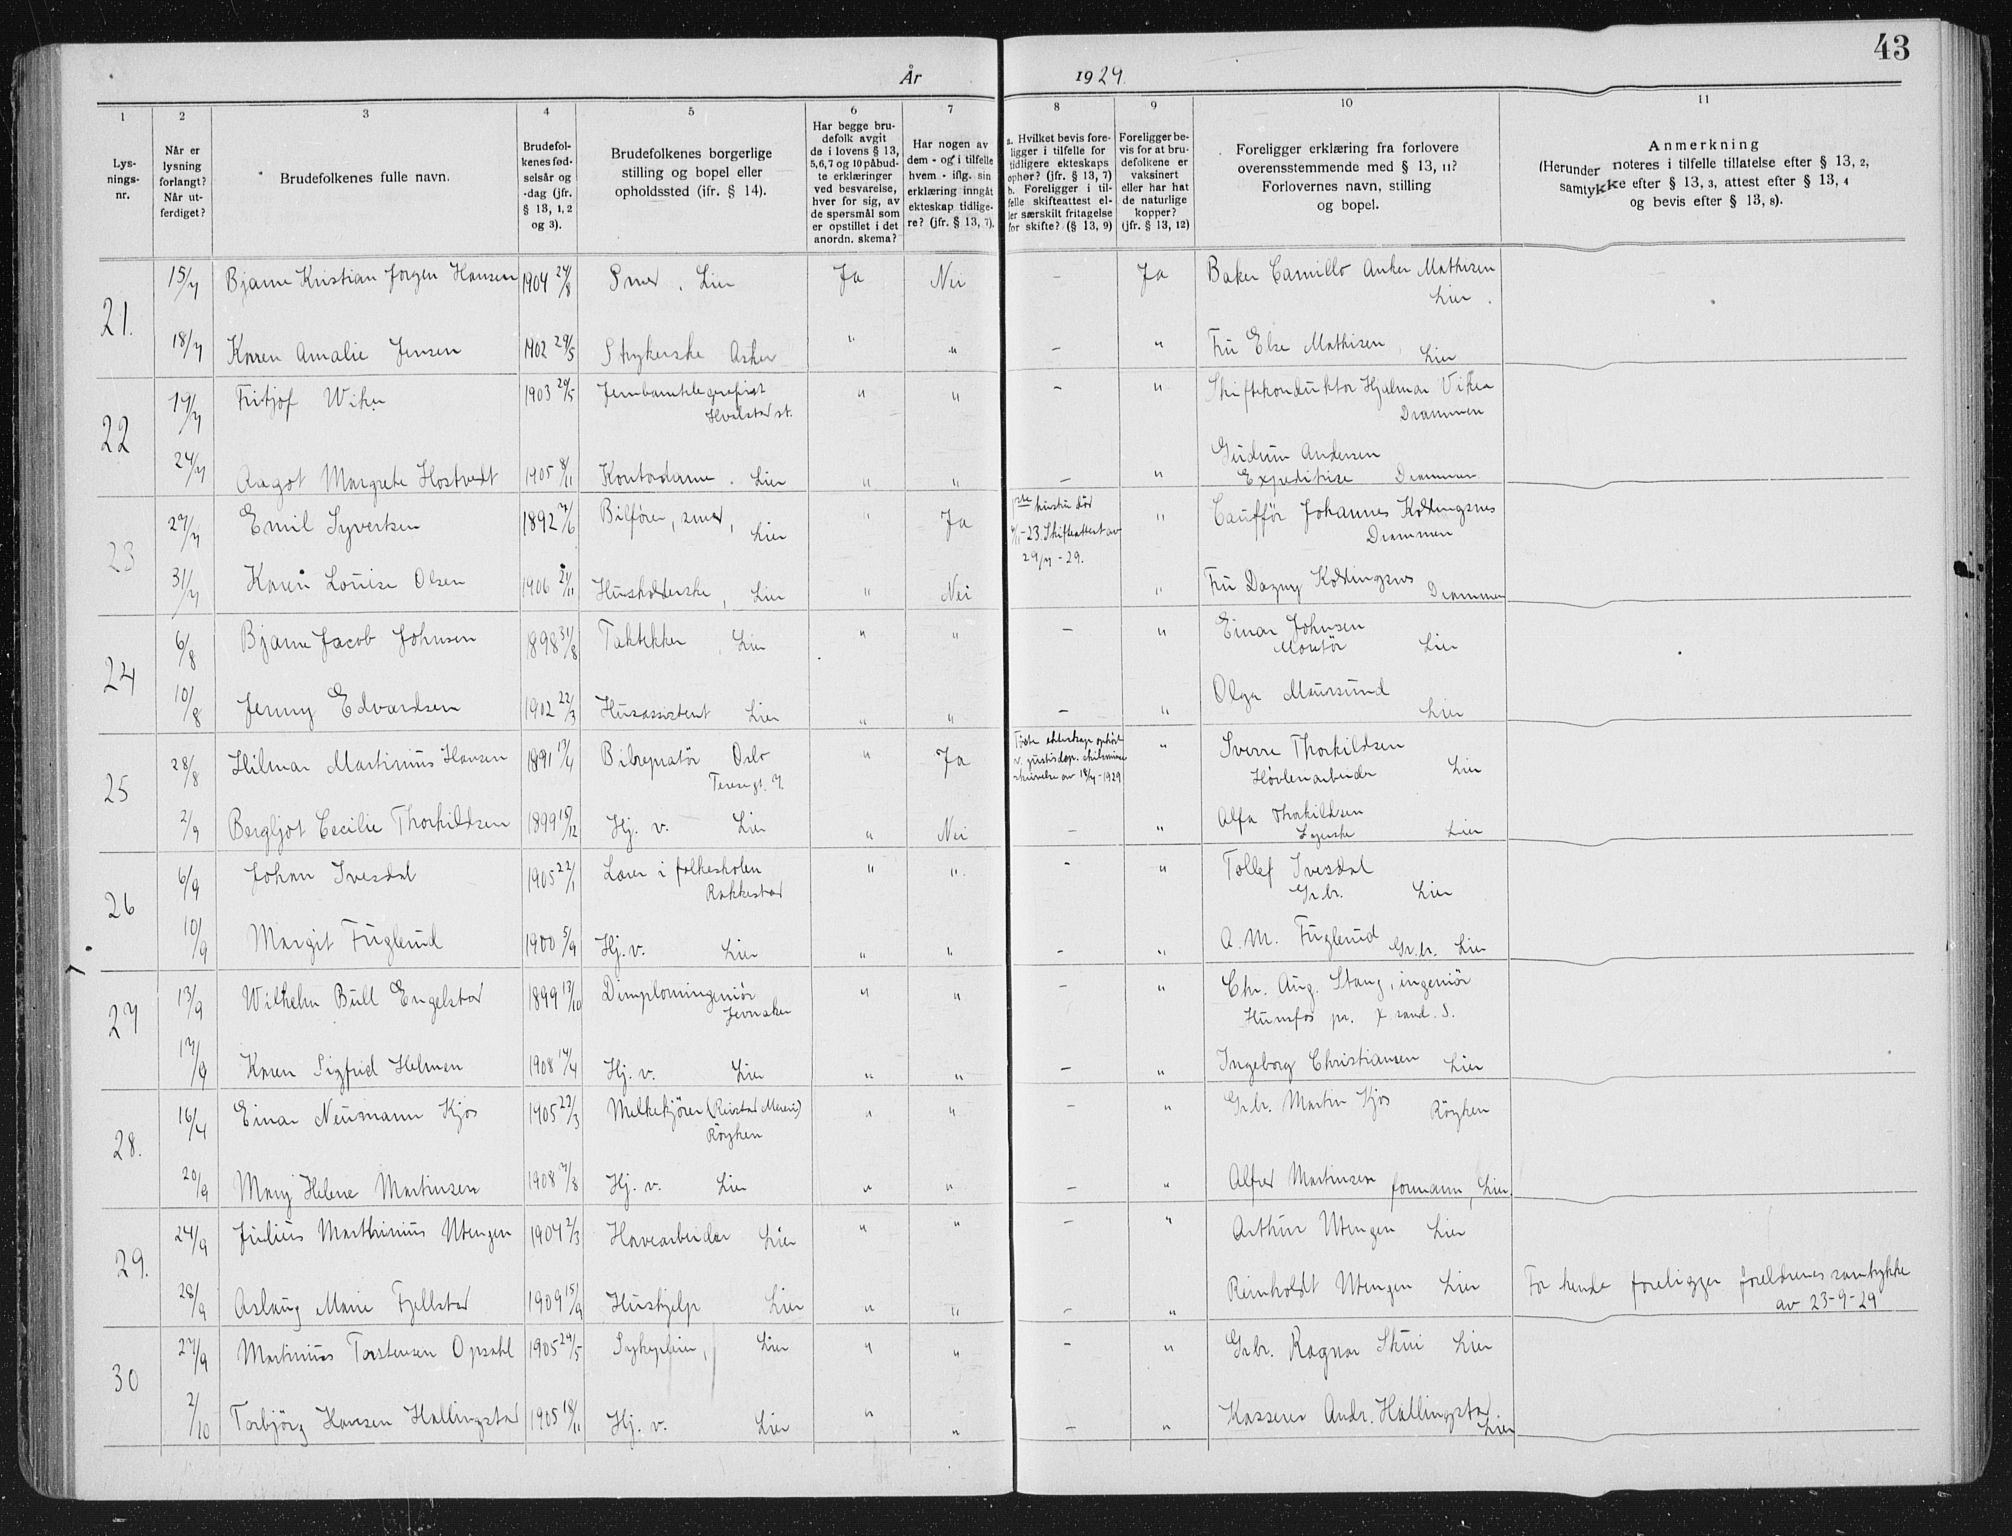 43
År 1929.
1 2 3 4 5 6 7 8 9 10 11
Lys-
nings-
nr.
Når er
lysning
forlangt?
Når ut-
ferdiget?
Brudefolkenes fulle navn.
Brudefol-
kenes fød-
selsår og
-dag (jfr.
§ 13, 1, 2
og 3).
Brudefolkenes borgerlige
stilling og bopel eller
opholdssted (jfr. § 14).
Har begge bru-
defolk avgit
de i lovens § 13,
5,6,7 og 10 påbud-
te erklæringer
ved besvarelse,
hver for sig, av
de spørsmål som
er opstillet i det
anordn. skema?
Har nogen av
dem - og i tilfelle
hvem - iflg. sin
erklæring inngåt
ekteskap tidlige-
re? (jfr. § 13, 7).
a. Hvilket bevis fore-
ligger i tilfelle for
tidligere ekteskaps
ophør? (jfr. § 13, 7)
b. Foreligger i til-
felle skifteattest el-
ler særskilt fritagelse
for skifte? (§ 13, 9)
Foreligger be-
vis for at bru-
defolkene er
vaksinert
eller har hat
de naturlige
kopper?
(jfr. § 13, 12)
Foreligger erklæring fra forlovere
overensstemmende med § 13, 11?
Forlovernes navn, stilling
og bopel.
Anmerkning
(Herunder noteres i tilfelle tillatelse efter § 13, 2,
samtykke efter § 13, 3, attest efter § 13, 4
og bevis efter § 13, 8).
21. 15/7 Bjarne Kristian Jørgen Hansen 1904 24/8 Smed, Lier Ja Nei — Ja Baker Camillo Anker Mathisen
Lier.
18/7 Karen Amalie Jensen 1902 29/5 Strykerske Asker " " — " Fru Else Mathisen, Lier
22 19/7 Fritjof Wiker 1903 29/5 Jernbanetelegrafist " " — " Skiftekonduktør Hjalmar Viker
Hvalstad st. Drammen
24/7 Aagot Margrete Hostvedt 1905 8/11 Kontordame. Lier " " — " Gudrun Andersen
Expeditrise Drammen
23 27/7 Emil Syvertsen 1892 7/6 Bilfører, smed, Lier " Ja 1ste hustru død
-23. Skifteattest av
29/7 -29.
" Cauffør Johannes Koldingsnes
Drammen
31/7 Karen Louise Olsen 1906 21/11 Husholderske, Lier " Nei " Fru Dagny Koldingsnes Drammen
24 6/8 Bjarne Jacob Johnsen 1898 31/8 Taktekker, Lier " " — " Einar Johnsen
Montør Lier
10/8 Jenny Edvardsen 1902 22/3 Husassistent Lier " " — " Olga Maursund
Lier
25 28/8 Hilmar Martinius Hansen 1891 13/4 Bilreparatør Oslo
Teresegt. 7.
" Ja Første ekteskap ophørt
v. justisdep. skilsmisse
skrivelse av 18/7 -1929
" Sverre Thorkildsen
Høvleriarbeider Lier
2/9 Bergljot Cecilie Thorkildsen 1899 15/12 Hj. v. Lier " Nei — " Alfa Thorkildsen
Syerske Lier
26 6/9 Johan Ivesdal 1905 22/1 Lærer i folkeskolen
Rakkestad
" " — " Tollef Ivesdal
Gr.br. Lier
10/9 Margit Fuglerud 1900 5/9 Hj. v. Lier " " — " A. M. Fuglerud Gr.br. Lier
27 13/9 Wilhelm Bull Engelstad 1899 13/10 Dimplomingeniør
Jevnaker
" " — " Chr. Aug. Stang, ingeniør
Hunsfos pr. Kr.sand. S.
17/9 Karen Sigfrid Helmen 1908 14/4 Hj. v. Lier " " — " Ingeborg Christiansen Lier
28. 16/4 Einar Neumann Kjos 1905 22/3 Melkekjører (Reistad Meieri)
Røyken
" " — " Gr.br. Martin Kjos Røyken
20/9 Mary Helene Martinsen 1908 7/8 Hj. v. Lier " " — " Alfred Martinsen formann, Lier
29. 24/9 Julius Marthinius Utengen 1904 2/3 Havearbeider Lier " " — " Arthur Utengen Lier
28/9 Aslaug Marie Fjellstad 1909 15/9 Hushjelp Lier " " — " Reinholdt Utengen Lier For hende foreligger foreldrenes samtykke
av 23-9-29
30 27/9 Martinius Torstensen Opsahl 1905 24/5 Sykepleier, Lier " " — " Gr.br. Ragnar Skui Lier
2/10 Torbjørg Hansen Hallingstad 1905 18/11 Hj. v. Lier " " — " Kasserer Andr. Hallingstad
Lier